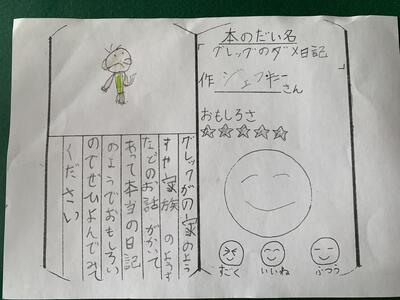 本のだい名
グレッグのダメ日記
作 ジェフキニー さん
おもしろさ
☆☆☆☆☆
だく いいね ふつう
グレッグがの家のよう
すや家族のようす
などのお話がかいて
あって本当の日記
のようでおもしろい
のでぜひよんでみて
ください